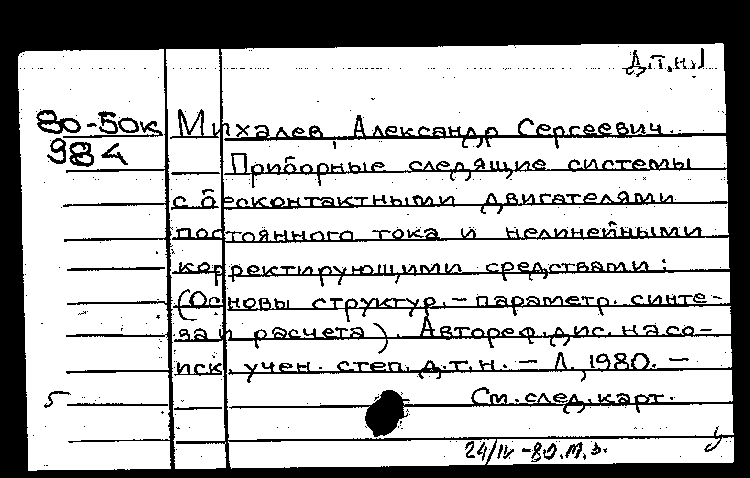 Д.т.н.!
80-50к Михалев, Александр Сергеевич.
984 Приборные следящие системы
с бесконтактными двигателями
постоянного тока и нелинейными
корректирующими средствами:
(Основы структур.-параметр. синте-
за и расчета). Автореф. дис. на со-
иск. учен. степ. д.т.н. - Л., 1980. -
5 См. след. карт.
24/IV-80.
у